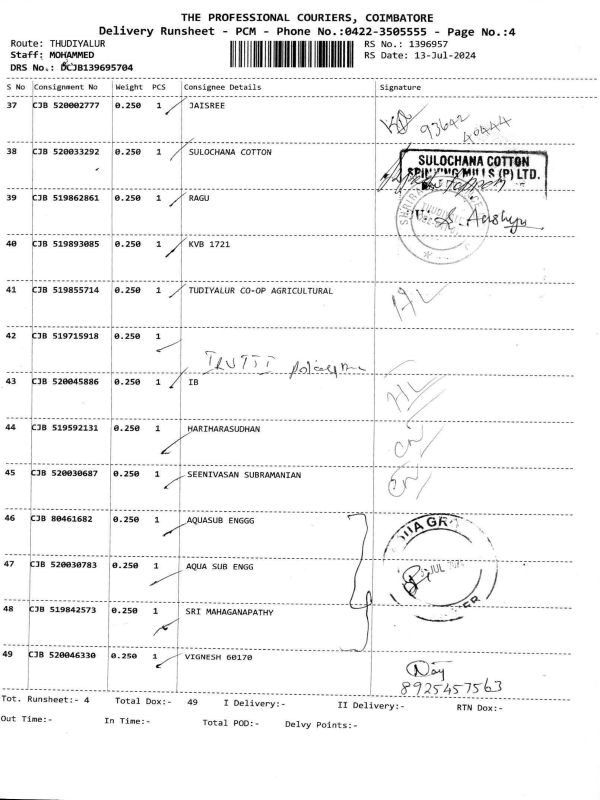 THE PROFESSIONAL COURIERS, COIMBATORE
Delivery Runsheet - PCM - Phone No.:0422-3505555 - Page No.:4
Route: THUDIYALUR RS No.: 1396957
Staff: MOHAMMED RS Date: 13-Jul-2024
DRS No.: DCJB139695704
S No Consignment No Weight PCS Consignee Details Signature
37 CJB 520002777 0.250 1 JAISREE
93642
40444
38 CJB 520033292 0.250 1 SULOCHANA COTTON
SULOCHANA COTTON
SPINNING MILLS (P) LTD.
39 CJB 519862861 0.250 1 RAGU
40 CJB 519893085 0.250 1 KVB 1721
41 CJB 519855714 0.250 1 TUDIYALUR CO-OP AGRICULTURAL
42 CJB 519715918 0.250 1
43 CJB 520045886 0.250 1 IB
44 CJB 519592131 0.250 1 HARIHARASUDHAN
45 CJB 520030687 0.250 1 SEENIVASAN SUBRAMANIAN
46 CJB 80461682 0.250 1 AQUASUB ENGGG
47 CJB 520030783 0.250 1 AQUA SUB ENGG
48 CJB 519842573 0.250 1 SRI MAHAGANAPATHY
49 CJB 520046330 0.250 1 VIGNESH 60170
8925457563
Tot. Runsheet:- 4 Total Dox:- 49 I Delivery:- II Delivery:- RTN Dox:-
Out Time:- In Time:- Total POD:- Delvy Points:-